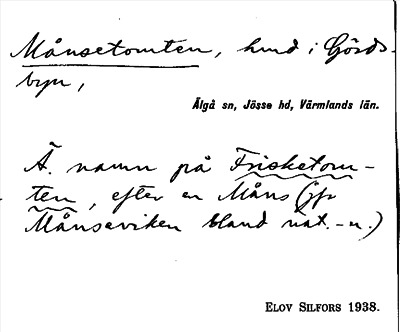 Månsetomten, hmd i Görds-
byn,
Älgå sn, Jösse hd, Värmlands län.
Ä. namn på Frisketom-
ten, efter en Måns (jfr
Månseviken bland nat.-n.)
ELOV SILFORS 1938.